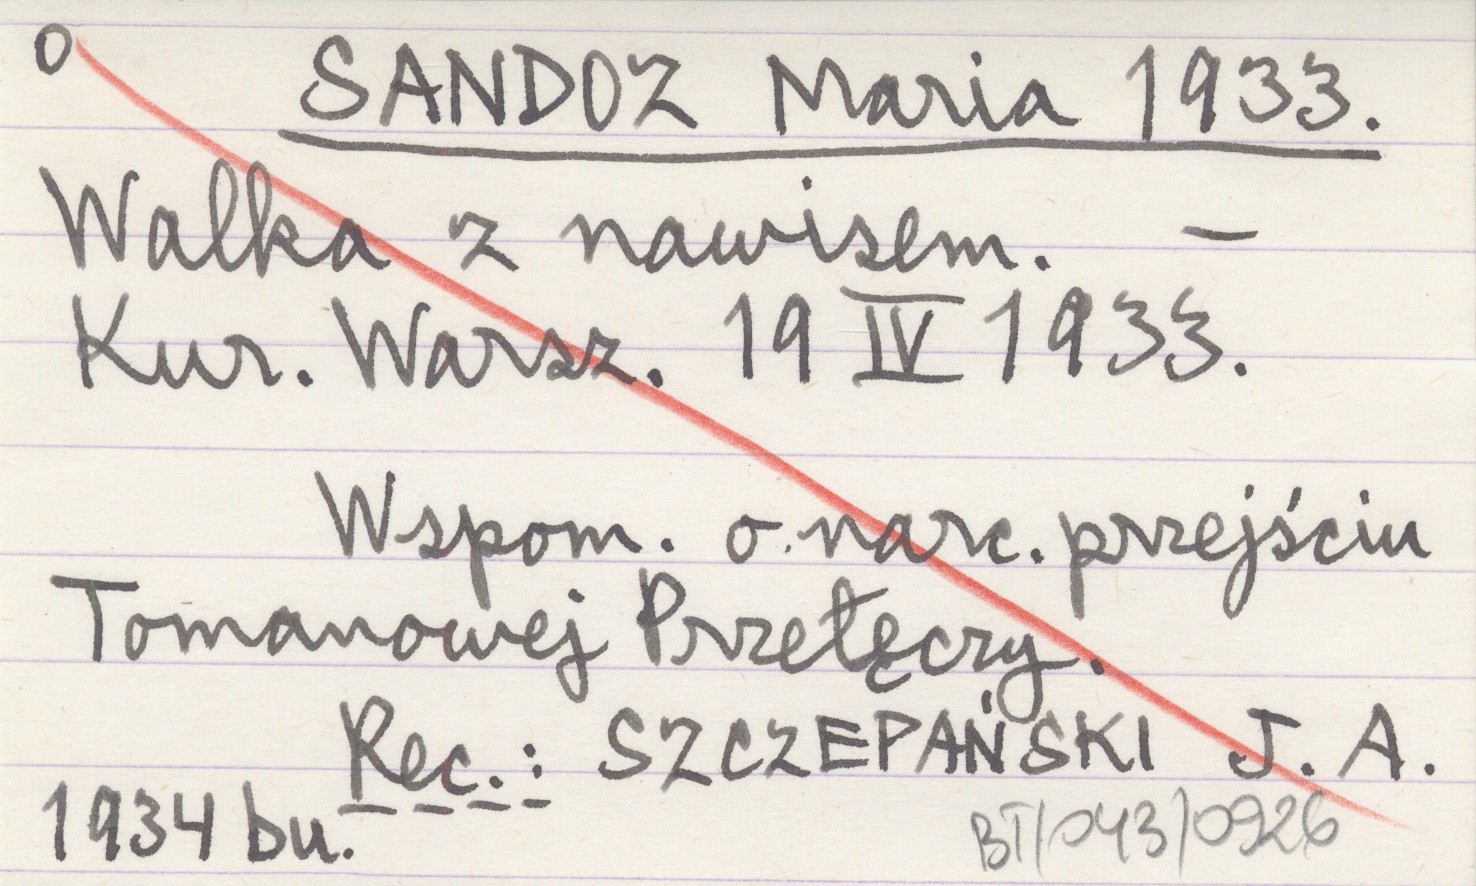 O
SANDOZ Maria 1933.
Walka z nawisem. –
Kur. Warsz. 19 IV 1933.
Wspom. o narc. przejściu
Tomanowej Przełęczy.
Rec.: SZCZEPAŃSKI J. A.
1934 bu.
BT/043/0926